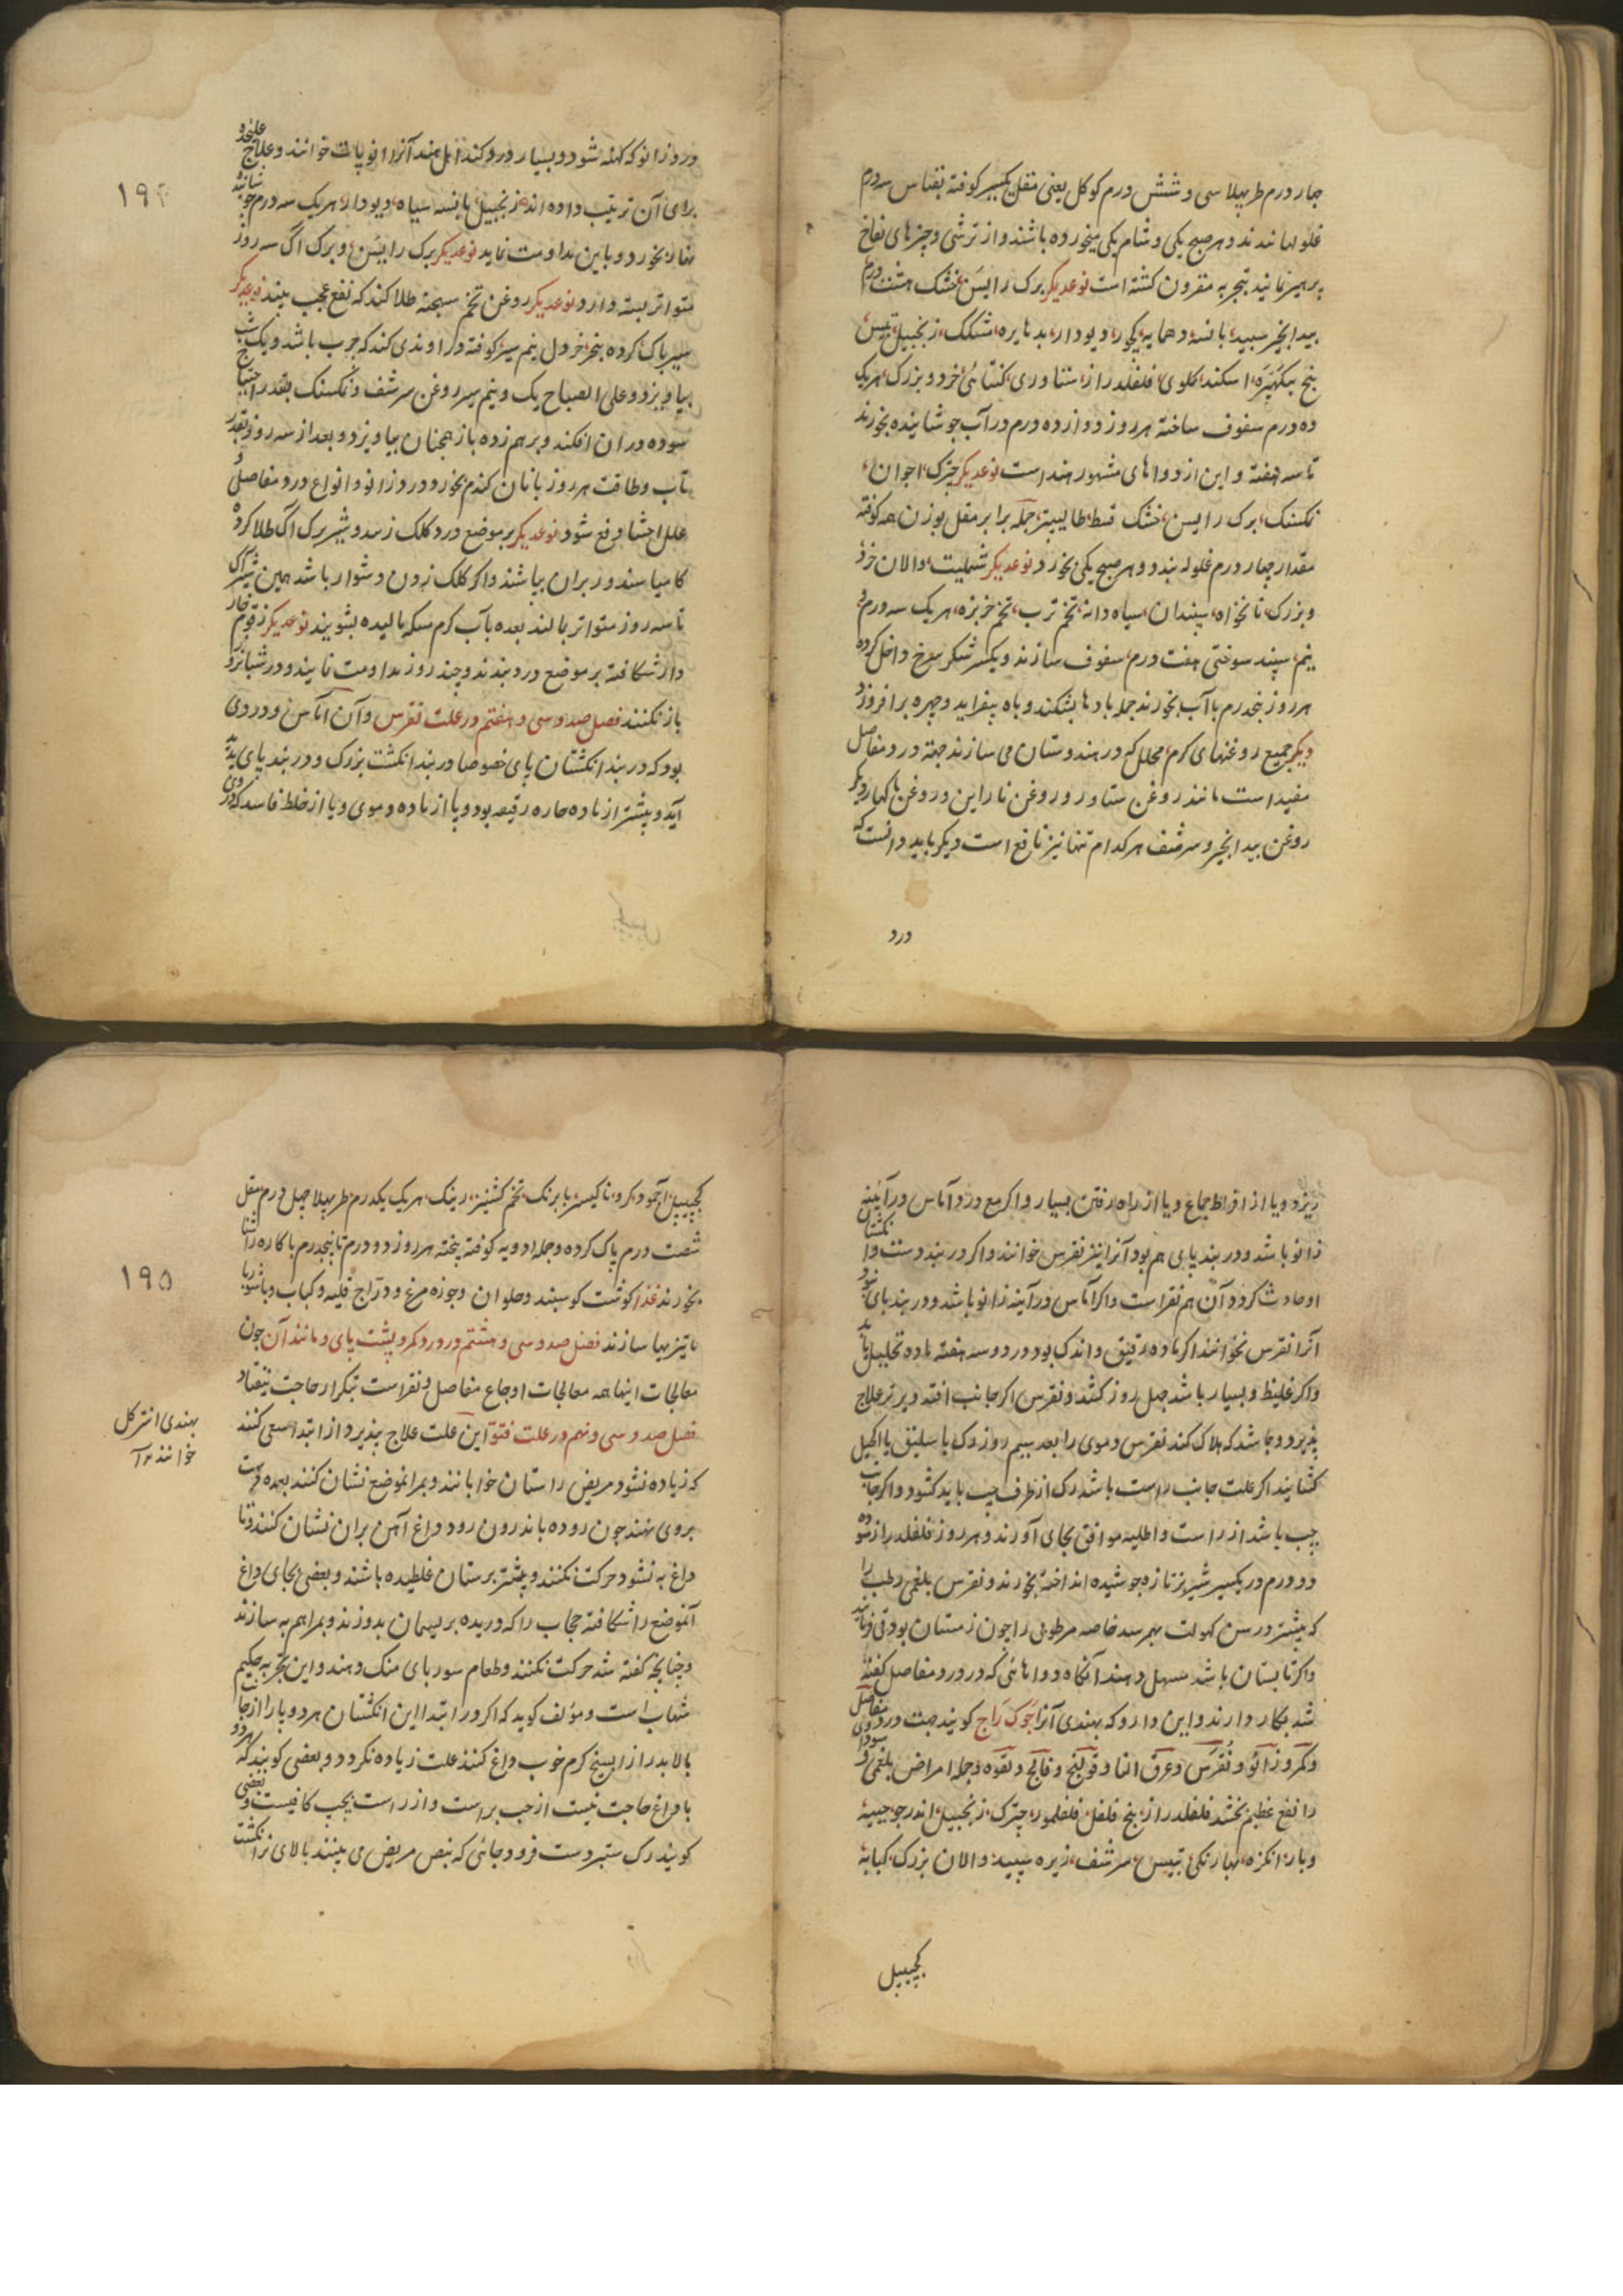 چار درم طربهلا سی و شش درم کوکل یعنی مقل یکسیر کوفته بقیاس سه درم
غلولها بندند و هر صبح یکی و شام یکی میخورده باشند و از ترشی و چیزهای نفاخ
پرهیز نمایند بتجربه مقرون کشته است نوعدیکر برک راسن خشک هشت درم
بیدانجیر سپید بانسه دهمایه کچور دیودار بدهایره شنکک زنجبیل تیس
بیخ سکهنیره اسکند کلوی فلفلدراز ستاوری کتائی خرد و بزرک هریک
ده درم سفوف ساخته هر روز دوازده درم در آب جوشانیده بخورند
تا سه هفته و این از دواهای مشهور هند است نوعدیکر چترک اجوان
نمکسنک برک راسن خشک قسط طالیسپتر جمله برابر مقل بوزن همه کوفته
مقدار چهار درم غلوله بندد و هر صبح یکی بخورد نوعدیکر شملیت والان خرد
و بزرک نانخواه سپندان سیاه دانه تخم ترب تخم خربزه هریک سه درم و
نیم سپند سوختی هفت درم سفوف سازند و یکسیر شکر سرخ داخل کرده
هر روز پنجدرم با آب بخورند جمله بادها بشکند و باه بیفزاید و چهره برافروزد
دیکر جمیع روغنهای کرم محلل که در هندوستان می سازند جهة درد مفاصل
مفید است مانند روغن ستاور و روغن ناراین و روغن بهاکهار و دیکر
روغن بیدانجیر و سرشف هر کدام تنها نیز نافع است دیکر باید دانست که
درد
درد زانو که کهنه شود و بسیار درد کند اهل هند آنرا انوپات خوانند و علاج علیحده
برای آن ترتیب داده اند زنجبیل بانسه سیاه دیودار هریک سه درم جوشانیده
نهار بخورد و باین مداومت نماید نوعدیکر برک راسن و برک اک سه روز
متواتر بسته دارد نوعدیکر روغن تخم سبهجنه طلا کند که نفع عجب بیند نوعدیکر
سیر پاک کرده پنج خردل نیم سیر کوفته در آوندی کند که چرب باشد و یک شب
بیاویزد و علی الصباح یک و نیم سیر روغن سرشف و نمکسنک بقدر احتیاج
سوده در ان افکند و برهم زده باز همچنان بیاویزد و بعد از سه روز بقدر
تاب و طاقت هر روز با نان کندم بخورد درد زانو و انواع درد مفاصل و
علل احشا دفع شود نوعدیکر بر موضع درد کلک زند و شیر برک اک طلا کرده
کامیا سند در بران بپاشند و اکر کلک زدن دشوار باشد همین شیر اک
تا سه روز متواتر بمالند بعده بآب کرم مسکه مالیده بشویند نوعدیکر زقوم خار
دار شکافته بر موضع درد بندند و چند روز مداومت نمایند و در شبانروز
باز نکنند فصل صد و سی و هفتم در علت نقرس و آن آماس و دردی
بود که در بند انکشتان پای خصوصا در بند انکشت بزرک و در بند پای پدید
آید و بیشتر از ماده حاره رقیقه بود و یا از ماده دموی و یا از خلط فاسد که از روی
۱۹۴
ریزد و یا از افراط جماع و یا از راه رفتن بسیار و اکر مع درد آماس در آئینه
زانو باشد و در بند پای هم بود آنرا نیز نقرس خوانند و اکر در بند دست و انکشتان
او حادث کردد آن هم نقرس است و اکر آماس در آینه زانو باشد و در بند پای نبود
آنرا نقرس نخوانند اکر ماده رقیق و اندک بود در دو سه هفته ماده تحلیل یابد
و اکر غلیظ و بسیار باشد چهل روز کشد و نقرس اکر جانب افتد دیرتر علاج
پذیرد و بجا شد که هلاک کند نقرس دموی را بعد سیم روز رک باسلیق یا اکحل
کشایند اکر علت جانب راست باشد رک از طرف چپ باید کشود و اکر جانب
چپ باشد از راست و اطلیه موافق بجای آورند و هر روز فلفلدراز سوده
دو درم در یکسیر شیر بز تازه جوشیده انداخته بخورند و نقرس بلغمی رطب را
که بیشتر در سن کهولت بهم رسد خاصه مرطوبی را چون زمستان بود قی فرمایند
و اکر تابستان باشد مسهل دهند آنکاه دواهائی که در درد مفاصل کفته
شد بکار دارند و این دارو که بهندی آنرا جوک راج کویند جهت درد مفاصل
و کمر و زانو و نقرس و عرق النسا و قولنج و فالج و لقوه و جمله امراض بلغمی و سوداوی
را نفع عظیم بخشد فلفلدراز بیخ فلفل فلفلمور چترک زنجبیل اندرجو جیپه
و بار انکزه بهارنکی تیس سرشف زیره سپید والان بزرک کبابه
کجپیپل
کجپیپل آجمود کرو ناکیسر بابرنک تخم کشنیز رینک هریک یکدرم طربهلا چهل درم مقل
شصت درم پاک کرده و جمله ادویه کوفته بیخته هر روز دو درم تا پنجدرم با کاره راسنا
بخورند غذا کوشت کوسپند و حلوان و جوزه مرغ و دراج قلیه و کباب و یا شوربا
با تیزیها سازند فصل صد و سی و هشتم در درد کمر و پشت پای و مانند آن چون
معالجات اینها همه معالجات اوجاع مفاصل و نقرس است بتکرار حاجت نیفتاد
فصل صد و سی و نهم در علت فتق این علت علاج پذیرد و از ابتدا سعی کنند
که زیاده نشود مریض را ستان خوابانند و بر انموضع نشان کنند بعده دست
بروی نهند چون روده باندرون رود داغ آهن بران نشان کنند و تا
داغ به نشود حرکت نکنند و بیشتر بر ستان غلطیده باشند و بعضی بجای داغ
آنموضع را شکافته حجاب را که دریده بریسمان بدوزند و بمراهم به سازند
و چنانچه کفته شد حرکت نکنند و طعام شوربای منک دهند و این تجربه حکیم
شهاب است و مؤلف کوید که اکر در ابتدا این انکشتان هر دو پا را از جانب
بالا بدرازا بسیخ کرم خوب داغ کنند علت زیاده نکردد و بعضی کویند که هر دو
پا داغ حاجت نیست از چپ براست و از راست بچپ کافیست و بعضی
کویند رک ستبر دست فرود جائی که نبض مریض می بینند بالای نر انکشت
بهندی انترکل
خوانند
۱۹۵